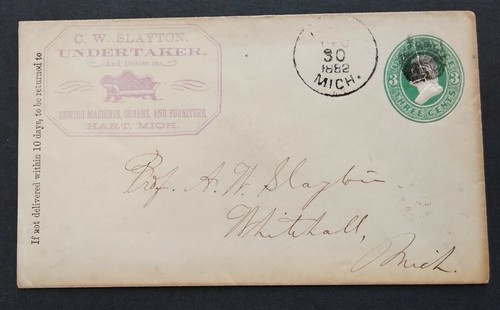 If not delivered within 10 days, to be returned to
C. W. SLAYTON,
UNDERTAKER,
And Dealer in
SEWING MACHINES, ORGANS, AND FURNITURE,
HART, MICH.
30
1882
MICH.
THREE CENTS
3 3
Prof. A. W. Slayton
Whitehall,
Mich.